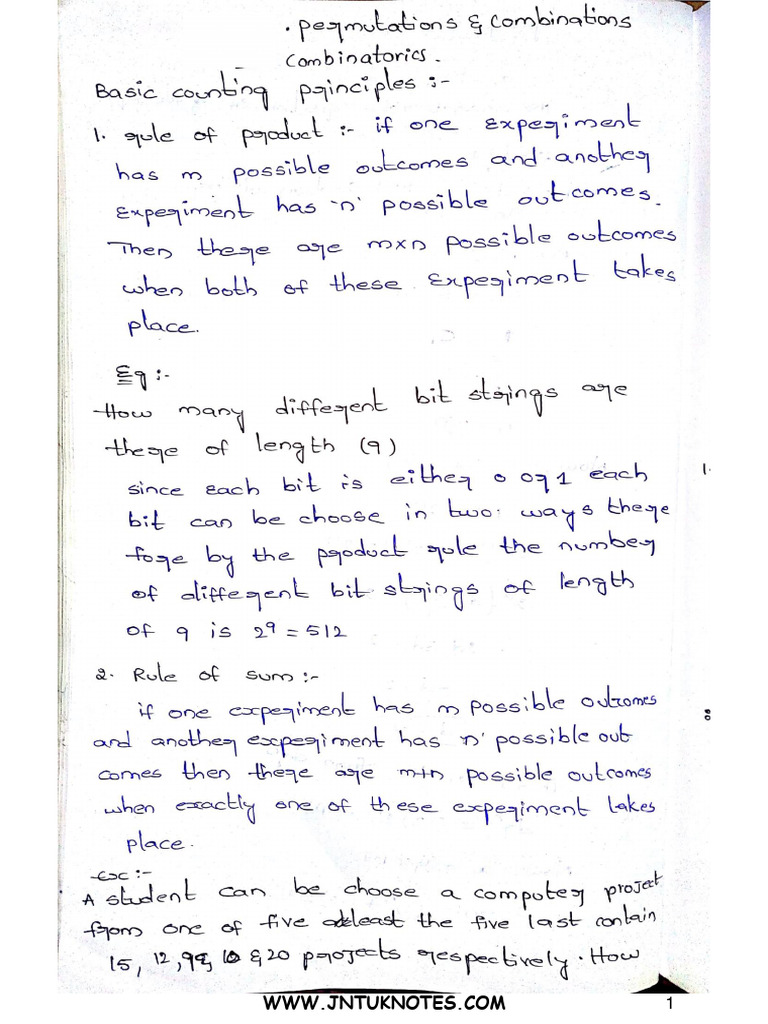 . permutations & combinations
combinatorics.
Basic counting principles :-
1. rule of product :- if one experiment
has m possible outcomes and another
experiment has 'n' possible outcomes.
Then there are m×n possible outcomes
when both of these experiment takes
place.
Eg :-
How many different bit strings are
there of length (9)
since each bit is either 0 or 1 each
bit can be choose in two ways there
fore by the product rule the number
of different bit strings of length
of 9 is 2⁹ = 512
2. Rule of sum :-
if one experiment has m possible outcomes
and another experiment has n' possible out
comes then there are m+n possible outcomes
when exactly one of these experiment takes
place.
Ex :-
A student can be choose a computer project
from one of five the five last contain
15, 12, & 20 projects respectively. How
WWW.JNTUKNOTES.COM 1